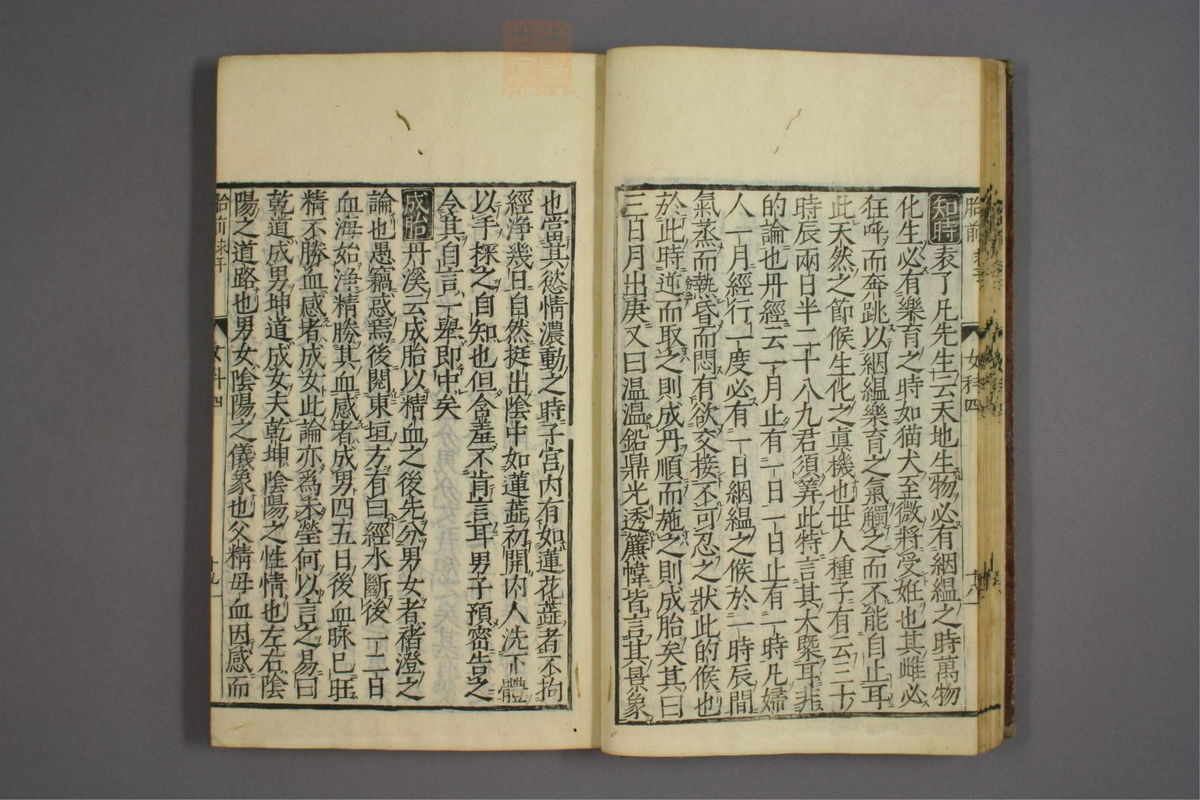 知時袁了凡先生云天地生物必有絪緼之時萬物
化生必有樂育之時如猫犬至微將受妊也其雌必
狂呼而奔跳以絪緼樂育之氣觸之而不能自止耳
此天然之節候生化之眞機也世人種子有云三十
時辰兩日半二十八九君須筭此特言其大槩耳非
的論也丹經云一月止有一日一日止有一時凡婦
人一月經行一度必有一日絪緼之候於一時辰間
氣蒸而熱昏而悶有欲交接不可忍之狀此的候也
於此時逆而取之則成丹順而施之則成胎矣其曰
三日月出庚又曰温温鉛鼎光透簾幃皆言其景象
女科四
也當其慾情濃動之時子宮内有如蓮花蕋者不拘
經淨幾日自然挺出陰中如蓮蕋初開内人洗下體
以手探之自知也但含羞不肯言耳男子預密告之
令其自言一舉即中矣
成胎丹溪云成胎以精血之後先分男女者褚澄之
論也愚竊惑焉後閱東垣方有曰經水斷後一二日
血海始淨精勝其血感者成男四五日後血脉已旺
精不勝血感者成女此論亦爲未瑩何以言之易曰
乾道成男坤道成女夫乾坤陰陽之性情也左右陰
陽之道路也男女陰陽之儀象也父精母血因感而